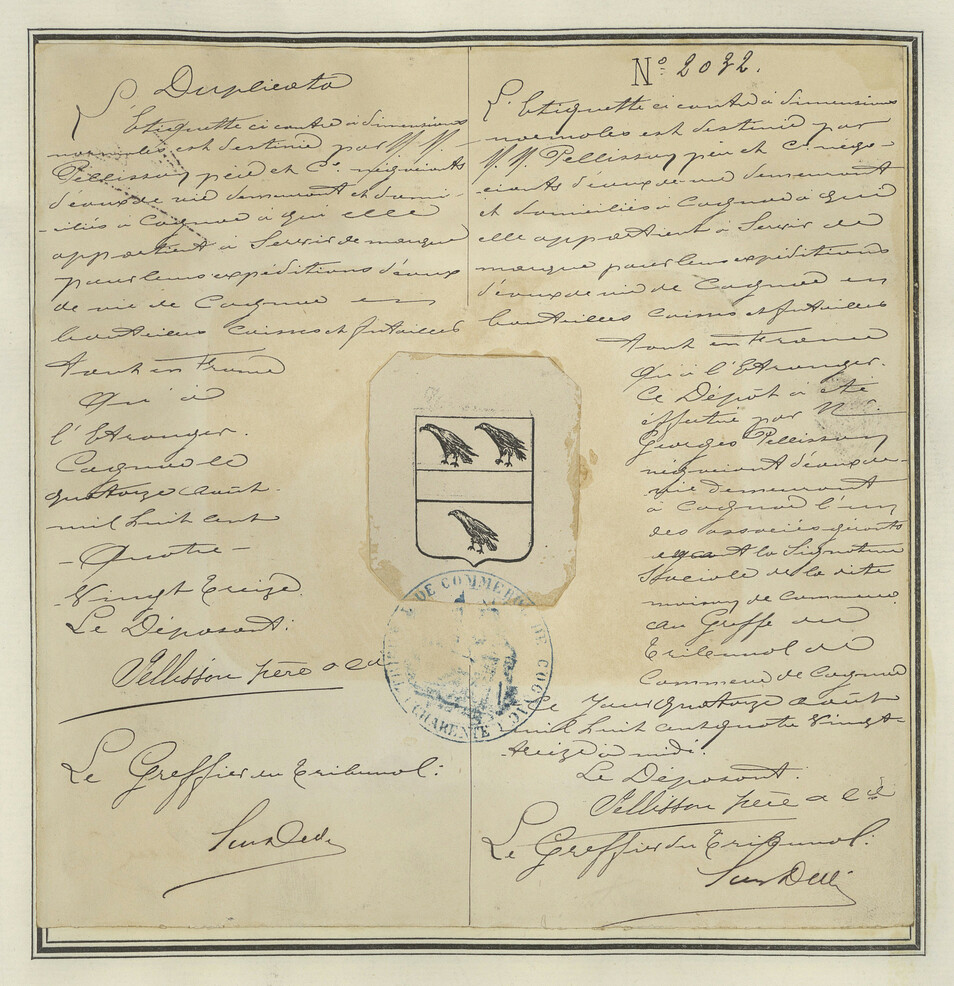 Duplicata
L'Etiquette ci contre à dimensions
normales est destinée par M. M.
Pellisson père et Cie. négociants
d'eaux de vie demeurant et domi-
-ciliés à Cognac à qui elle
appartient à Servir de marque
pour leurs expéditions d'eaux
de vie de Cognac en
bouteilles caisses et futailles
tant en France
qu'à
l'Etranger.
Cognac le
quatorze août
mil huit cent
- Quatre -
-Vingt treize.
Le Déposant:
Pellisson père & Cie
Le Greffier du Tribunal:
No. 2032.
L'Etiquette ci contre à dimensions
normales est destinée par
M. M. Pellisson père et Cie. négo-
-ciants d'eaux de vie demeurant
et domiciliés à Cognac à qui
elle appartient à Servir de
marque pour leurs expéditions
d'eaux de vie de Cognac en
bouteilles caisses et futailles
tant en France
qu'à l'Etranger.
Ce Dépôt a été
effectué par Mr.
Georges Pellisson
négociant d'eaux de
-vie demeurant
à Cognac l'un
des associés gérants
ayant la Signature
Sociale de la dite
maison de commerce
au Greffe du
Tribunal de
Commerce de Cognac
ce jour quatorze août
mil huit cent quatre Vingt-
treize à midi.
Le Déposant:
Pellisson père & Cie
Le Greffier du Tribunal:
TRIBUNAL DE COMMERCE DE COGNAC (CHARENTE)